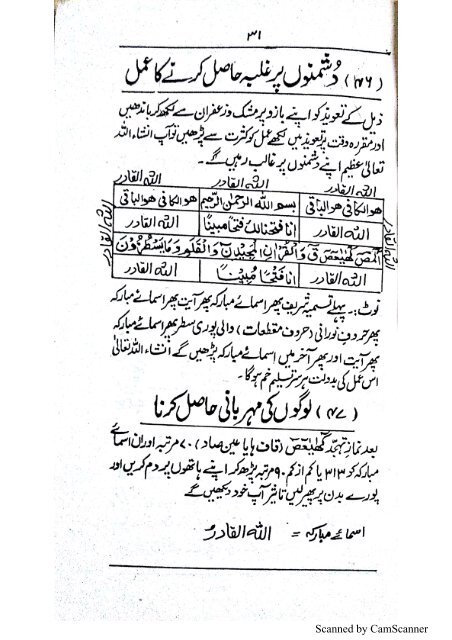 ۳۱
(۴۶) دشمنوں پر غلبہ حاصل کرنے کا عمل
ذیل کے تعویذ کو اپنے بازو پر مشک و زعفران سے لکھ کر باندھیں
اور مقررہ وقت پر تعویذ میں لکھے عمل کو کثرت سے پڑھیں تو آپ انشاء اللہ
تعالیٰ عظیم اپنے دشمنوں پر غالب رہیں گے۔
اللہ القادر اللہ القادر اللہ القادر
ھو الکافی ھو الباقی بسم اللہ الرحمٰن الرحیم ھو الکافی ھو الباقی
اللہ القادر انا فتحنا لک فتحا مبینا اللہ القادر
کھیعص ق وَالقُرْاٰنِ الْمَجِیْدِ نٓ وَالْقَلَمِ وَمَا یَسْطُرُوْنَ
اللہ القادر انا فتحنا مبینا اللہ القادر
اللہ القادر
اللہ القادر
نوٹ:۔ پہلے تسمیہ شریف پھر اسمائے مبارکہ پھر آیت پھر اسمائے مبارکہ
پھر حروف نورانی (حروف مقطعات) والی پوری سطر پھر اسمائے مبارکہ
پھر آیت اور پھر آخر میں اسمائے مبارکہ پڑھیں گے انشاء اللہ تعالیٰ
اس عمل کی بدولت ہر سر تسلیم خم ہوگا۔
(۴۷) لوگوں کی مہربانی حاصل کرنا
بعد نماز تہجد کھیعص (قاف ہا یا عین صاد) ۷۰ مرتبہ اور ان اسمائے
مبارکہ کو ۳۱۳ یا کم از کم ۹۰ مرتبہ پڑھ کر اپنے ہاتھوں پر دم کریں اور
پورے بدن پر پھیر لیں تاثیر آپ خود دیکھیں گے
اسمائے مبارکہ = اللہ القادر
Scanned by CamScanner